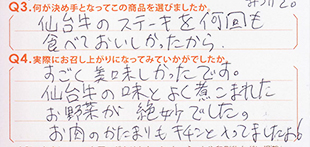 Q3.何が決め手となってこの商品を選びましたか
仙台牛のステーキを何回も
食べておいしかったから.
Q4.実際にお召し上がりになってみていかがでしたか
すごく美味しかったです。
仙台牛の味とよく煮こまれた
お野菜が絶妙でした。
お肉のかたまりもキチンと入ってましたよ